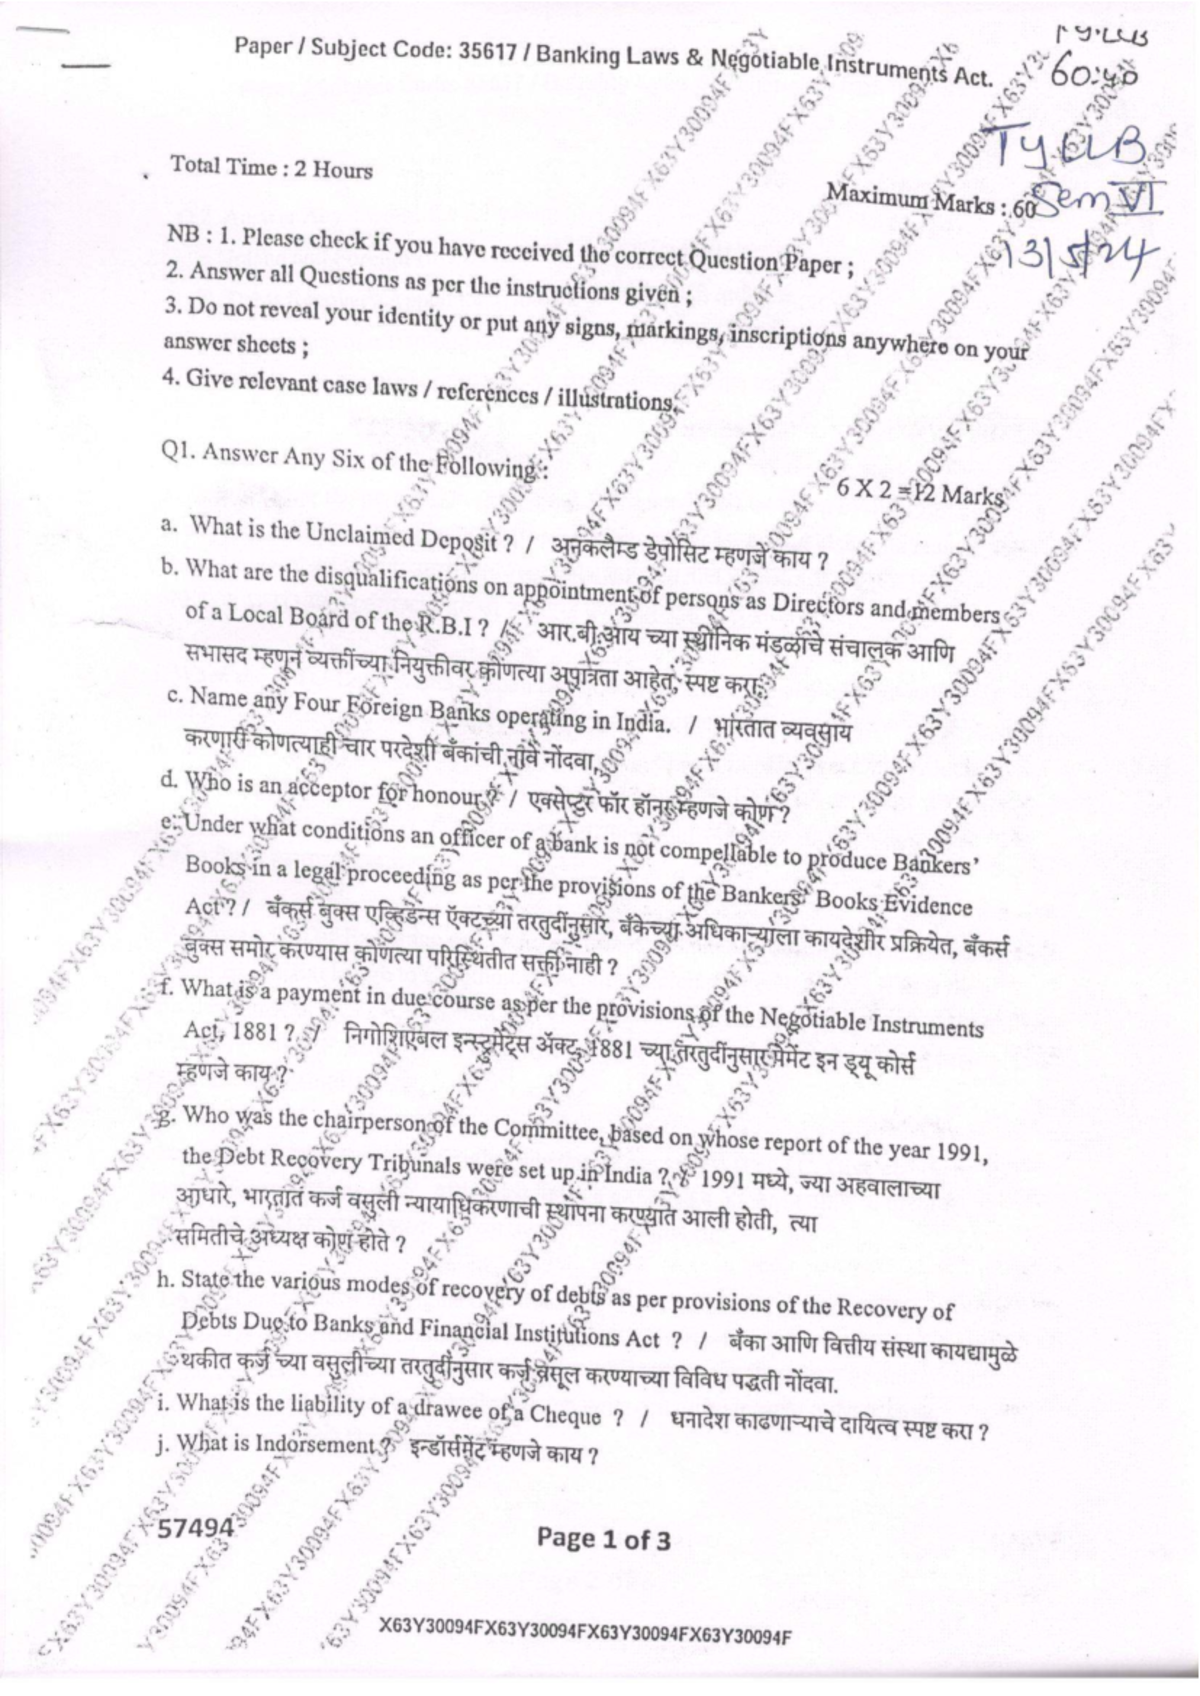 Paper / Subject Code: 35617 / Banking Laws & Negotiable Instruments Act.
60:40
TyLLB
Sem VI
13/5/24
Total Time : 2 Hours
Maximum Marks : 60
NB : 1. Please check if you have received the correct Question Paper ;
2. Answer all Questions as per the instructions given ;
3. Do not reveal your identity or put any signs, markings, inscriptions anywhere on your
answer sheets ;
4. Give relevant case laws / references / illustrations.
Q1. Answer Any Six of the Following :
6 X 2 = 12 Marks
a. What is the Unclaimed Deposit ? / अनकलैम्ड डेपोसिट म्हणजे काय ?
b. What are the disqualifications on appointment of persons as Directors and members
of a Local Board of the R.B.I ? / आर.बी.आय च्या स्थानिक मंडळाचे संचालक आणि
सभासद म्हणून व्यक्तींच्या नियुक्तीवर कोणत्या अपात्रता आहेत, स्पष्ट करा.
c. Name any Four Foreign Banks operating in India. / भारतात व्यवसाय
करणारी कोणत्याही चार परदेशी बँकांची नांवे नोंदवा.
d. Who is an acceptor for honour ? / एक्सेप्टर फॉर हॉनर म्हणजे कोण ?
e. Under what conditions an officer of a bank is not compellable to produce Bankers'
Books in a legal proceeding as per the provisions of the Bankers' Books Evidence
Act ? / बँकर्स बुक्स एव्हिडन्स ऍक्टच्या तरतुदींनुसार, बँकेच्या अधिकाऱ्याला कायदेशीर प्रक्रियेत, बँकर्स
बुक्स समोर करण्यास कोणत्या परिस्थितीत सक्ती नाही ?
f. What is a payment in due course as per the provisions of the Negotiable Instruments
Act, 1881 ? / निगोशिएबल इन्स्ट्रुमेंट्स ॲक्ट, 1881 च्या तरतुदींनुसार पेमेंट इन ड्यू कोर्स
म्हणजे काय ?
g. Who was the chairperson of the Committee, based on whose report of the year 1991,
the Debt Recovery Tribunals were set up in India ? / 1991 मध्ये, ज्या अहवालाच्या
आधारे, भारतात कर्ज वसुली न्यायाधिकरणाची स्थापना करण्यात आली होती, त्या
समितीचे अध्यक्ष कोण होते ?
h. State the various modes of recovery of debts as per provisions of the Recovery of
Debts Due to Banks and Financial Institutions Act ? / बँका आणि वित्तीय संस्था कायद्यामुळे
थकीत कर्ज च्या वसुलीच्या तरतुदींनुसार कर्ज वसूल करण्याच्या विविध पद्धती नोंदवा.
i. What is the liability of a drawee of a Cheque ? / धनादेश काढणाऱ्याचे दायित्व स्पष्ट करा ?
j. What is Indorsement ? इन्डॉर्समेंट म्हणजे काय ?
57494
Page 1 of 3
X63Y30094FX63Y30094FX63Y30094FX63Y30094F